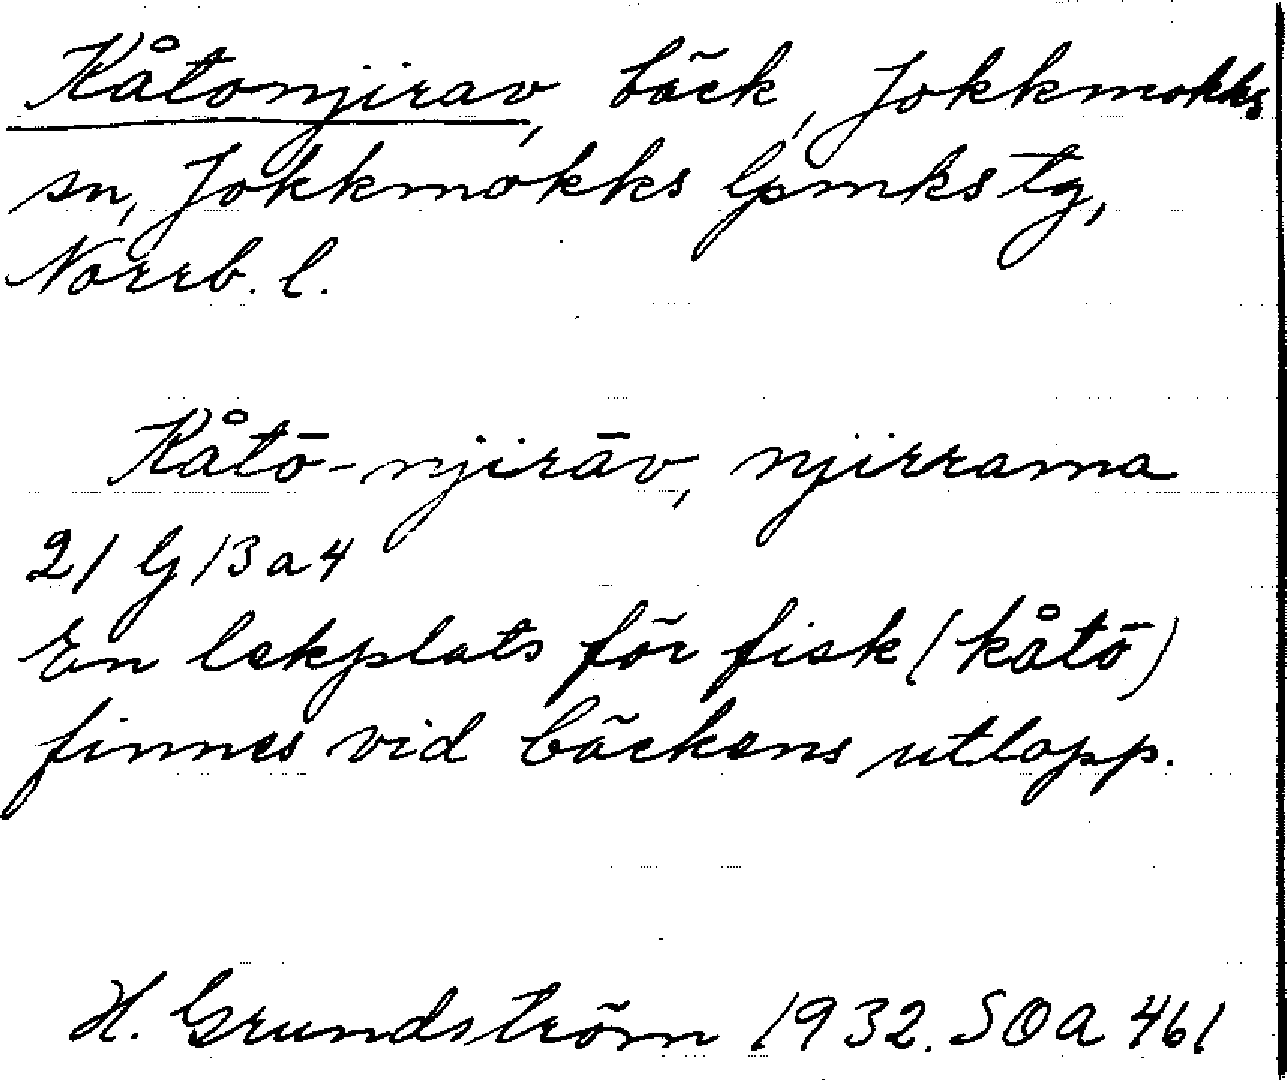 Kåtonjirav, bäck, Jokkmokks
sn, Jokkmokks lpmks tg,
Norrb. l.
Kåtō-njirāv, njirrama
21 Ij 13 a 4
En lekplats för fisk (kåtō)
finnes vid bäckens utlopp.
H. Grundström 1932. SOA 461